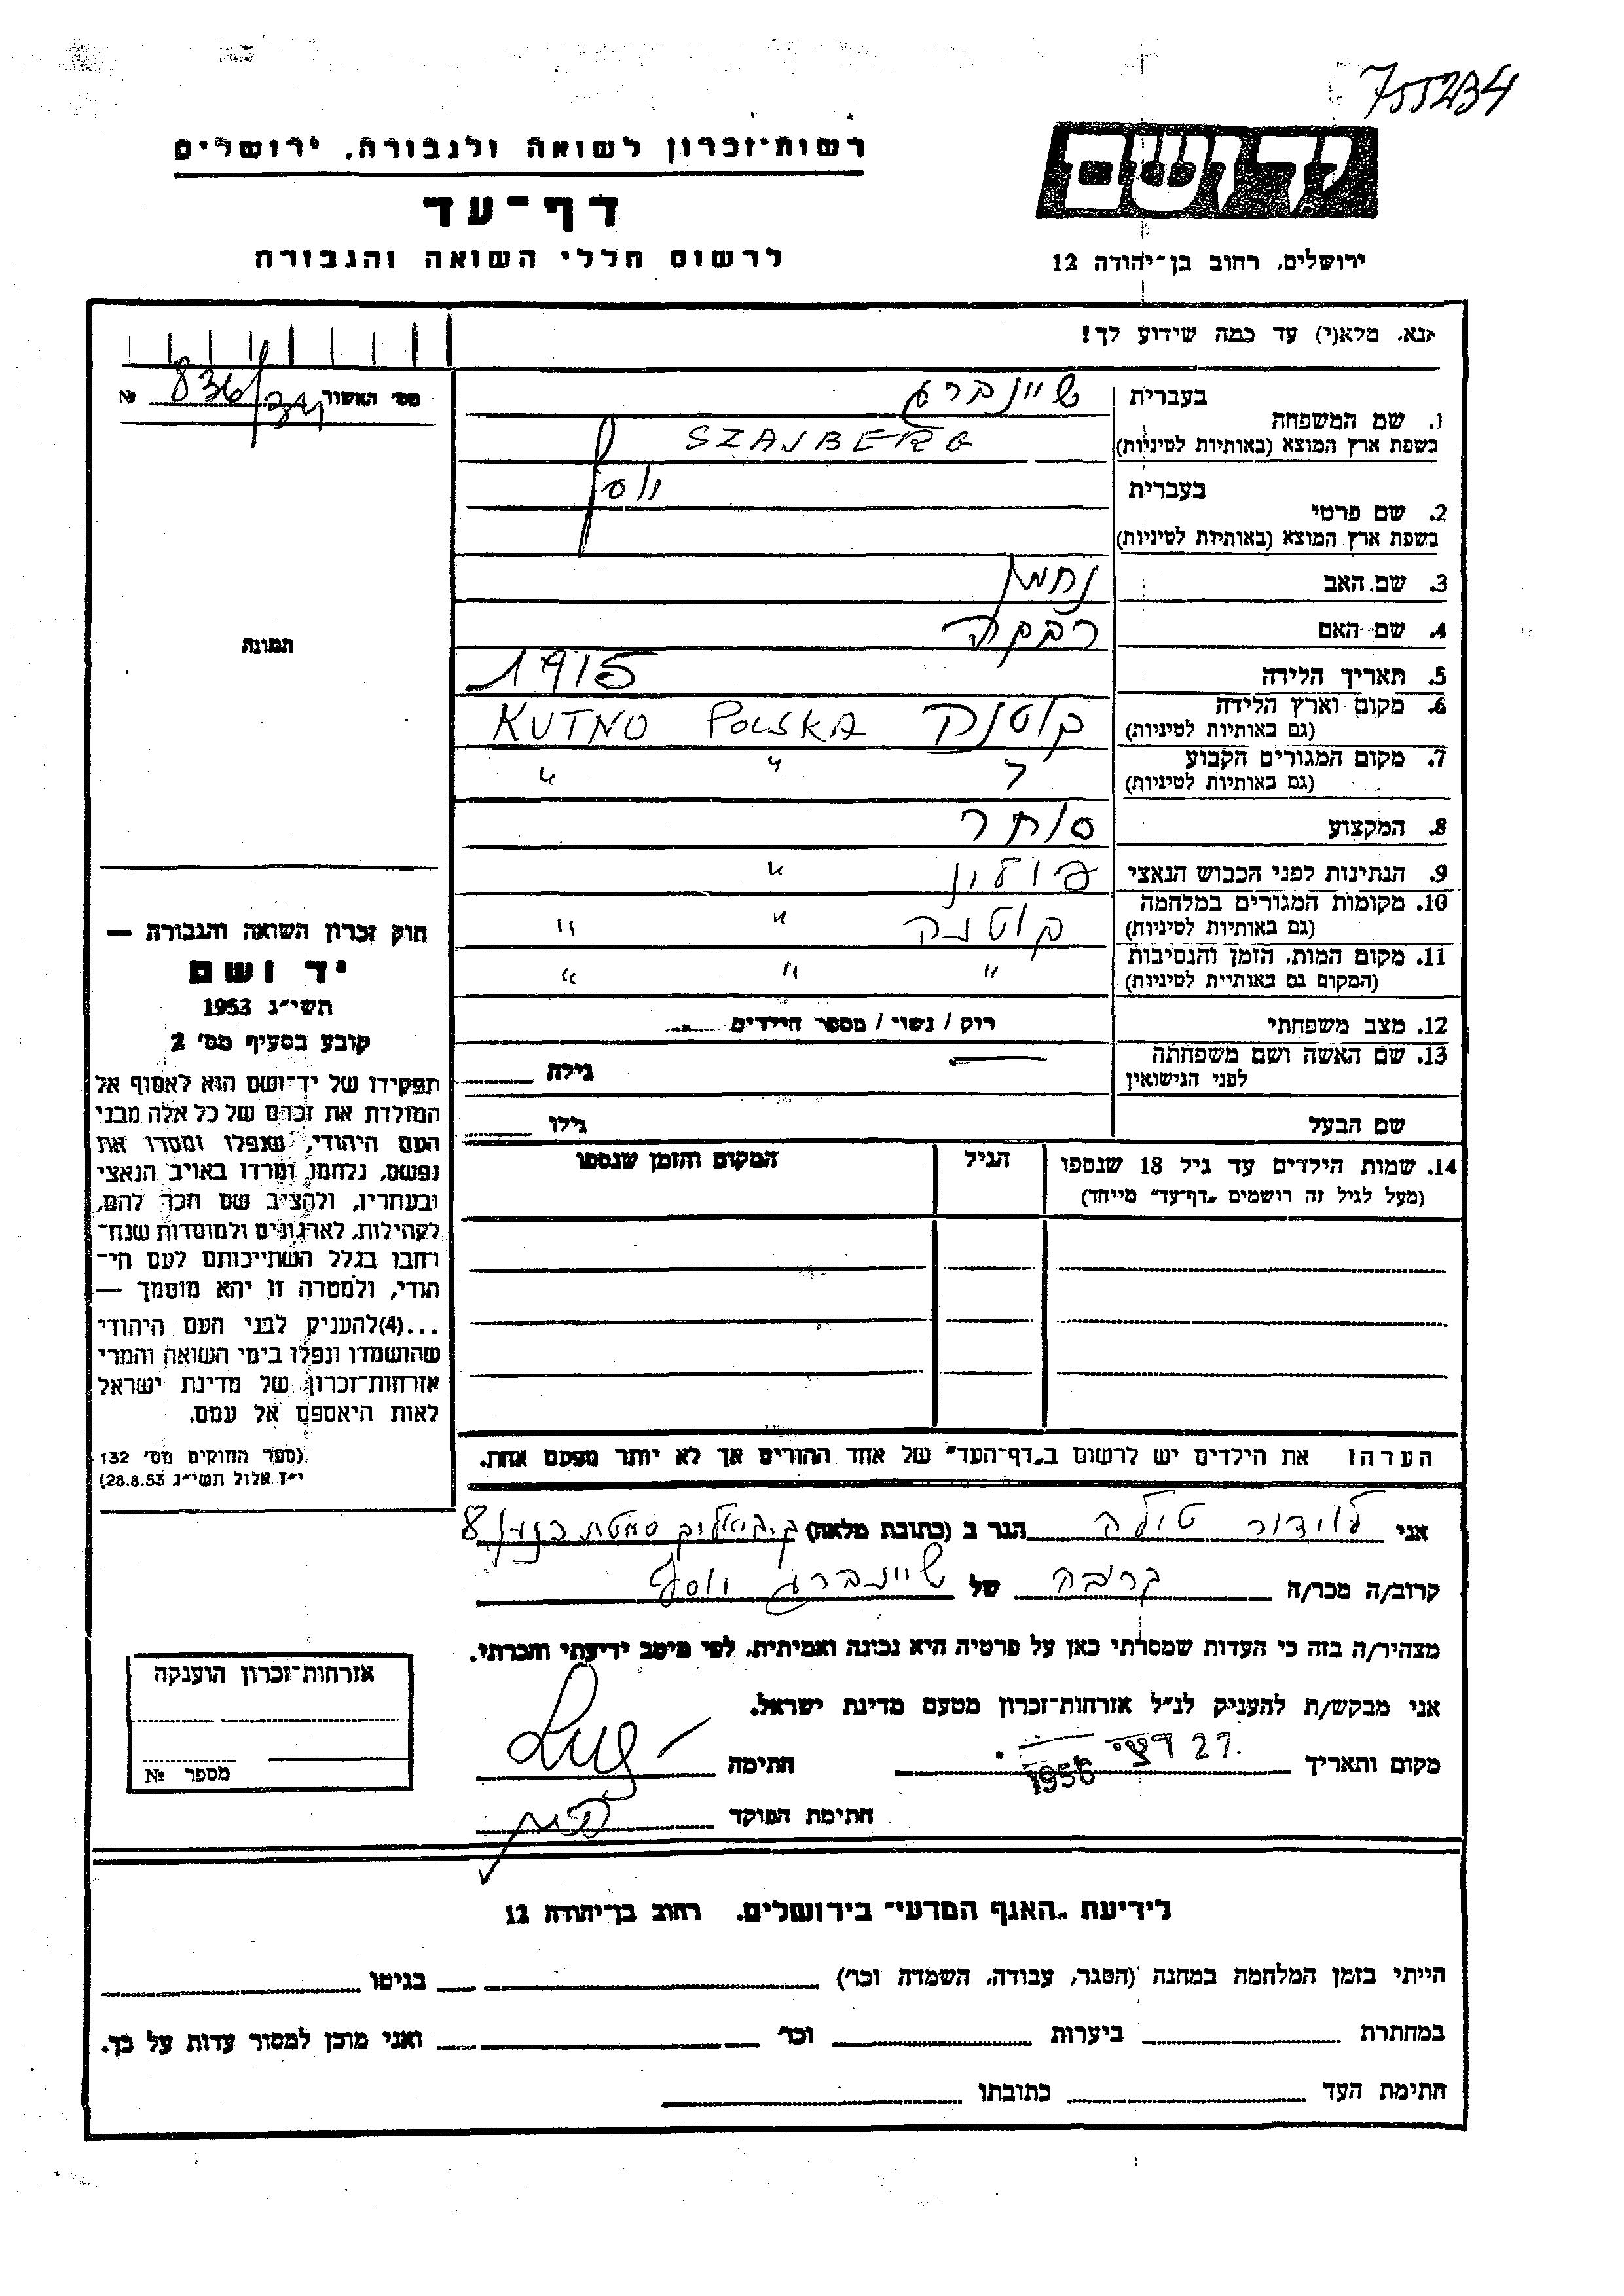 755234
יד ושם
ירושלים, רחוב בן־יהודה 12
רשות־זכרון לשואה ולגבורה, ירושלים
דף־עד
לרשום חללי השואה והגבורה
אנא, מלא(י) עד כמה שידוע לך!
מס׳ האשור 836/34 №
תמונה
1. שם המשפחה
בעברית שיינברג
בשפת ארץ המוצא (באותיות לטיניות) SZAJBERG
2. שם פרטי
בעברית יוסף
בשפת ארץ המוצא (באותיות לטיניות)
3. שם האב נחמן
4. שם האם רבקה
5. תאריך הלידה 1915
6. מקום וארץ הלידה קוטנה POLSKA KUTNO
(גם באותיות לטיניות)
7. מקום המגורים הקבוע " " "
(גם באותיות לטיניות)
8. המקצוע סוחר
9. הנתינות לפני הכבוש הנאצי פולין "
10. מקומות המגורים במלחמה קוטנה " "
(גם באותיות לטיניות)
11. מקום המות, הזמן והנסיבות " " "
(המקום גם באותיות לטיניות)
12. מצב משפחתי רוק / נשוי / מספר הילדים
13. שם האשה ושם משפחתה גילה
לפני הנישואין
שם הבעל גילו
14. שמות הילדים עד גיל 18 שנספו הגיל המקום והזמן שנספו
(מעל לגיל זה רושמים „דף־עד״ מייחד)
הערה! את הילדים יש לרשום ב„דף־העד״ של אחד ההורים אך לא יותר מפעם אחת.
חוק זכרון השואה והגבורה —
יד ושם
תשי״ג 1953
קובע בסעיף מס׳ 2
תפקידו של יד־ושם הוא לאסוף אל
המולדת את זכרם של כל אלה מבני
העם היהודי, שנפלו ומסרו את
נפשם, נלחמו ומרדו באויב הנאצי
ובעוזריו, ולהציב שם וזכר להם,
לקהילות, לארגונים ולמוסדות שנח־
רבו בגלל השתייכותם לעם הי־
הודי, ולמטרה זו יהא מוסמך —
...(4)להעניק לבני העם היהודי
שהושמדו ונפלו בימי השואה והמרי
אזרחות־זכרון של מדינת ישראל
לאות היאספם אל עמם.
(ספר החוקים מס׳ 132
י״ז אלול תשי״ג 28.8.53)
אני לוידור טולה הגר ב (כתובת מלאה) 8
קרוב/ה מכר/ה קרובה של שיינברג יוסף
מצהיר/ה בזה כי העדות שמסרתי כאן על פרטיה היא נכונה ואמיתית, לפי מיטב ידיעתי והכרתי.
אני מבקש/ת להעניק לנ״ל אזרחות־זכרון מטעם מדינת ישראל.
מקום ותאריך 27 1956 חתימה
חתימת הפוקד
אזרחות־זכרון הוענקה
מספר №
לידיעת „האגף המדעי״ בירושלים, רחוב בן־יהודה 12
הייתי בזמן המלחמה במחנה (הסגר, עבודה, השמדה וכו׳) בגיטו
במחתרת ביערות וכו׳ ואני מוכן למסור עדות על כך.
חתימת העד כתובתו